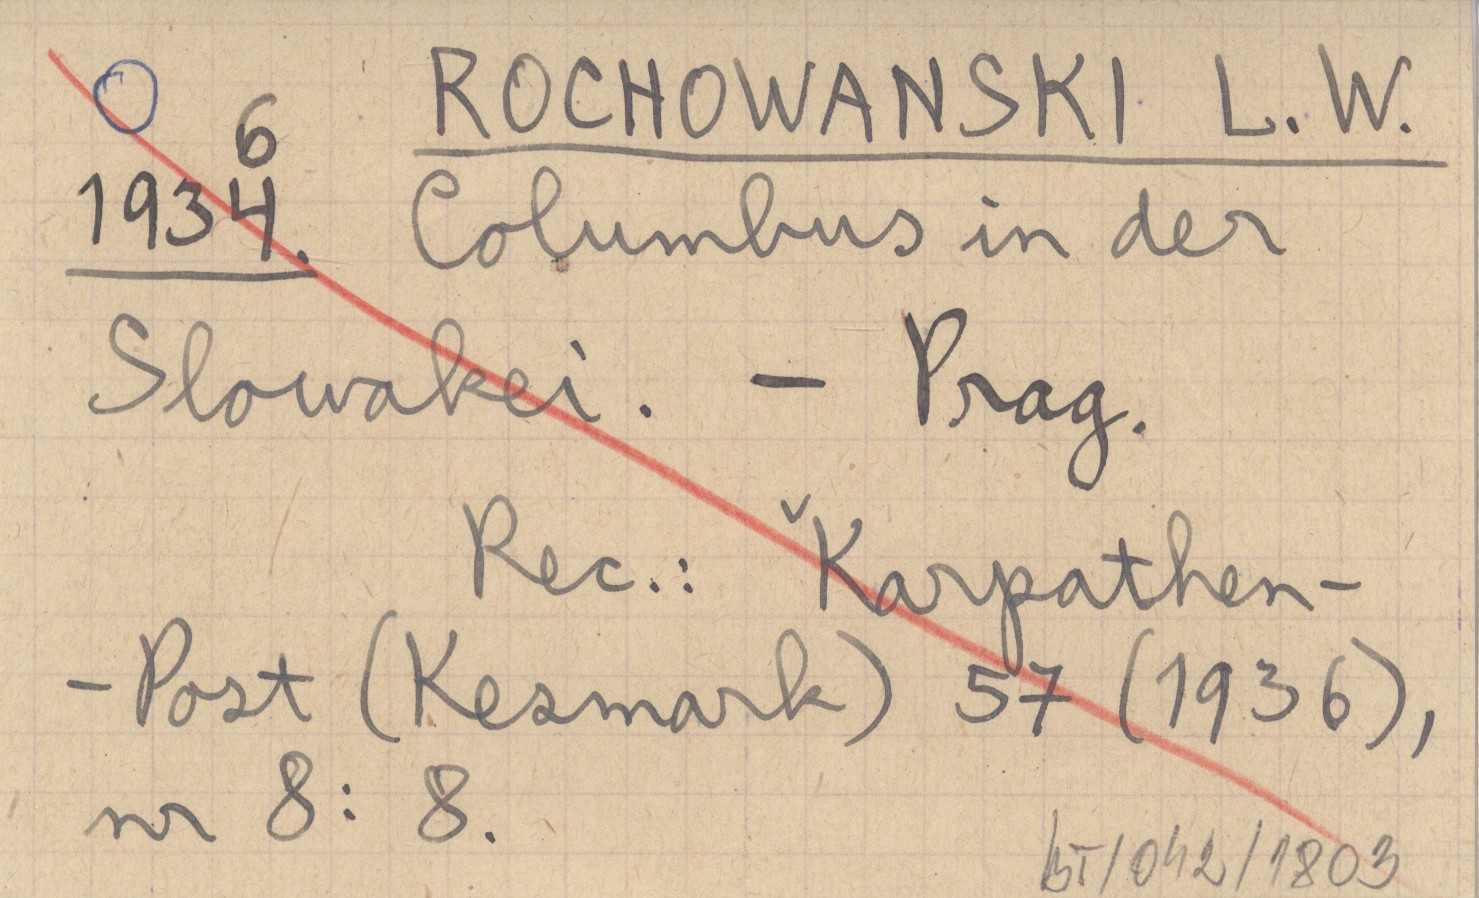 ROCHOWANSKI L.W.
6
1934. Columbus in der
Slowakei. – Prag.
Rec.: ˇKarpathen-
-Post (Kesmark) 57 (1936),
nr 8: 8.
BT/042/1803